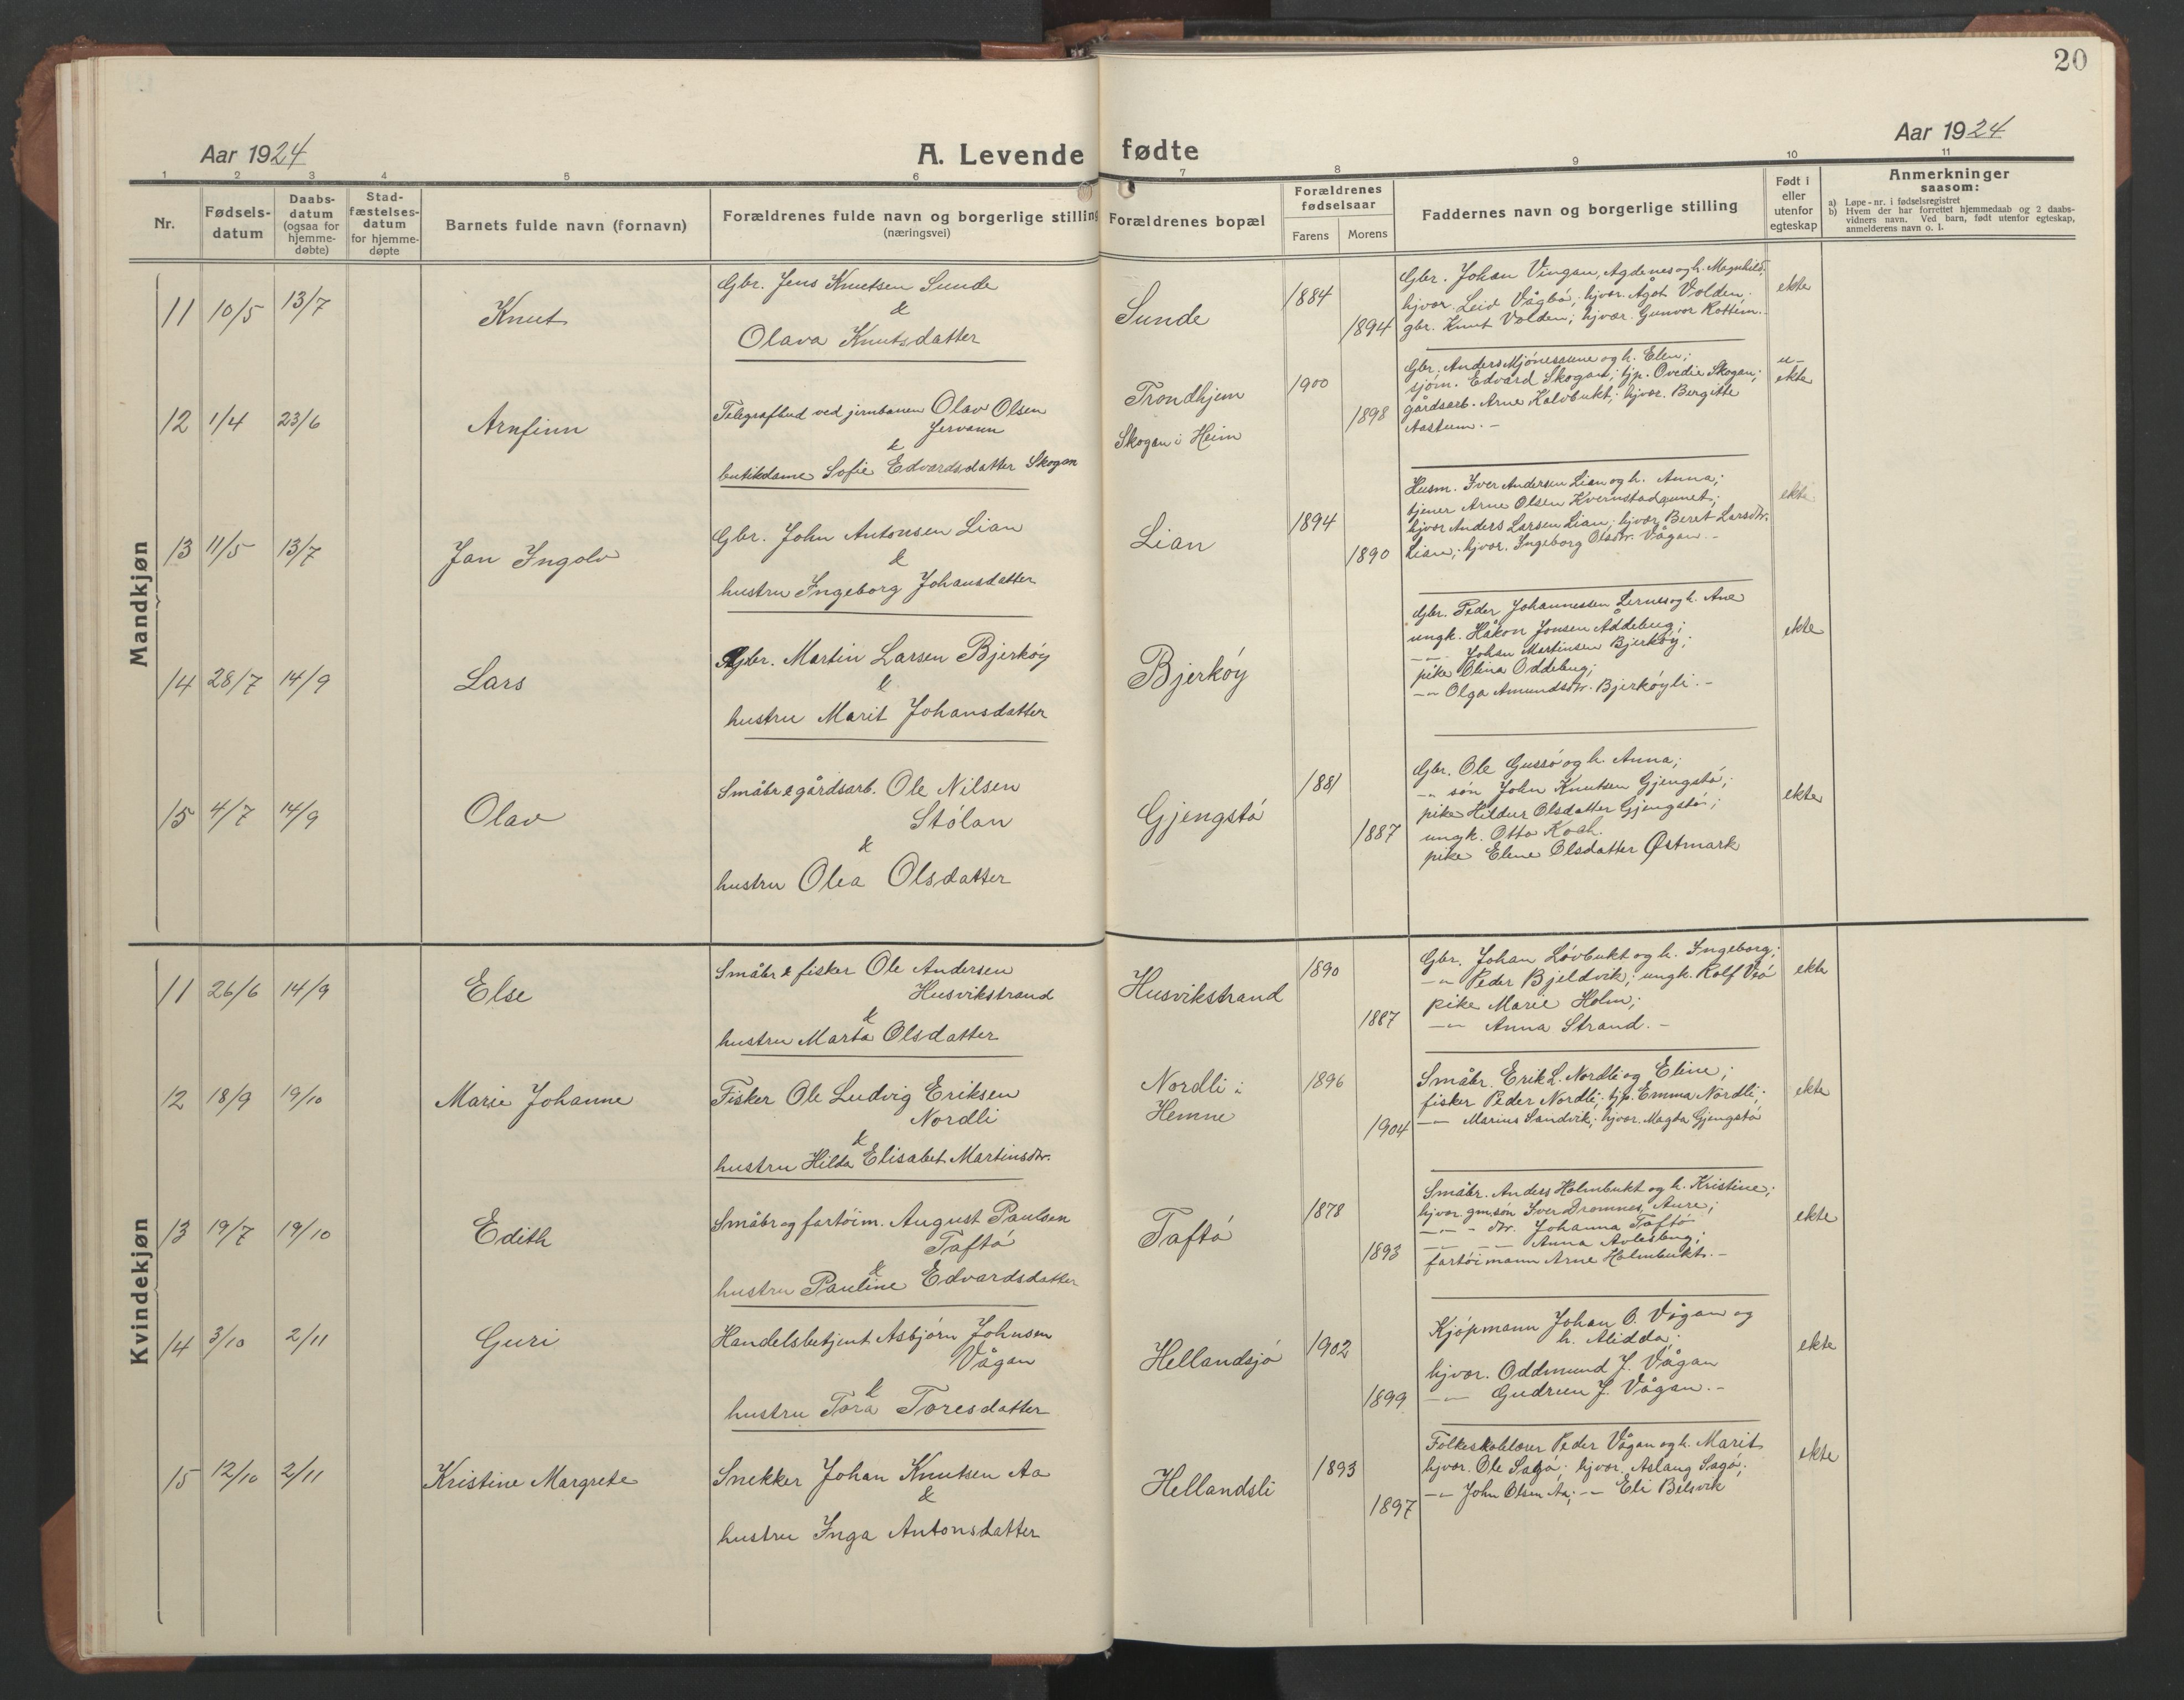 20
Aar 1924
A. Levende fødte
Aar 1924
1 2 3 4 5 6 7 8 9 10 11
Nr.
Fødsels-
datum
Daabs-
datum
(ogsaa for
hjemme-
døbte)
Stad-
fæstelses-
datum
for hjemme-
døpte
Barnets fulde navn (fornavn)
Forældrenes fulde navn og borgerlige stilling
(næringsvei)
Forældrenes bopæl
Forældrenes
fødselsaar
Farens Morens
Faddernes navn og borgerlige stilling
Født i
eller
utenfor
egteskap
Anmerkninger
saasom:
a) Løpe-nr. i fødselsregistret
b) Hvem der har forrettet hjemmedaab og 2 daabs-
vidners navn. Ved barn, født utenfor egteskap,
anmelderens navn o. l.
Mandkjøn
11 10/5 13/7 Knut
Gbr. Jens Knutsen Sunde
&
Olava Knutsdatter
Sunde
1884
1894
Gbr. Johan Vingan, Agdenes og h. Magnhild;
hjvor. Leid Vågbö; hjvor. Agot Volden;
gbr. Knut Volden; hjvor. Gunvor Rottem.
ekte
12 1/4 23/6 Arnfinn
Telegrafbud ved jernbanen Olav Olsen
Jervann
&
butikdame Sofie Edvardsdatter Skogan
Trondhjem
Skogan i Heim
1900
1898
Gbr. Anders Mjönesaune og h. Elen;
sjöm. Edvard Skogan; tjp. Ovedie Skogan;
gårdsarb. Arne Halvbukt; hjvor. Bergitte
Aastum. -
u-
ekte
13 11/5 13/7 Jan Ingolv
Gbr. John Antonsen Lian
&
hustru Ingeborg Johansdatter
Lian
1894
1890
Husm. Iver Andersen Lian og h. Anna;
tjener Arne Olsen Kvernstadaunet;
hjvor Anders Larsen Lian; hjvor Beret Larsdtr.
Lian; hjvor. Ingeborg Olsdtr. Vågan -
ekte
14 28/7 14/9 Lars
Gbr. Martin Larsen Bjerköy
&
hustru Marit Johansdatter
Bjerköy
Gbr. Peder Johannessen Lernes og h. Ane
ungk. Håkon Jonsen Åddebug;
-"- Johan Martinsen Bjerköy;
pike Olina Oddebug;
-"- Olga Amundsdtr. Bjerköyli. -
ekte
15 4/7 14/9 Olav
Småbr & gårdsarb. Ole Nilsen
Stölan
&
hustru Olea Olsdatter
Gjengstö
1881
1887
Gbr. Ole Gussö og h. Anna;
-"- sön John Knutsen Gjengstö;
pike Hildur Olsdatter Gjengstö;
ungk. Otto Koch.
pike Elene Olsdatter Østmark
ekte
Kvindekjøn
11 26/6 14/9 Else
Småbr & fisker Ole Andersen
Husvikstrand
&
hustru Marta Olsdatter
Husvikstrand
1890
1887
Gbr. Johan Lövbukt og h. Ingeborg;
-"- Peder Bjeldvik; ungk. Rolf Vtö
pike Marie Holm;
-"- Anna Strand. -
ekte
12 18/9 19/10 Marie Johanne
Fisker Ole Ludvig Eriksen
Nordli
&
hustru Hilda Elisabet Martinsdtr.
Nordli i
Hemne
1896
1904
Småbr. Erik L. Nordli og Eline;
fisker Peder Nordli; tjp. Emma Nordli;
-"- Marius Sandvik; hjvor. Magda Gjengstö
ekte
13 19/7 19/10 Edith
Småbr og fartöim. August Paulsen
Taftö
&
hustru Pauline Edvardsdatter
Taftö
1878
1893
Småbr. Anders Holmbukt og h. Kristine;
hjvor. gm.sön Iver Dromnes, Aure;
-"- - dtr. Johanna Taftö
-"- -"- Anna Avlesbug;
fartöimann Arne Holmbukt. -
ekte
14 3/10 2/11 Guri
Handelsbetjent Asbjörn Johnsen
Vågan
&
hustru Tora Toresdatter
Hellandsjö
1902
1899
Kjöpmann Johan O. Vågan og
h. Alidda;
hjvor. Oddmund J. Vågan
-"- Gudrun J. Vågan. -
ekte
15 12/10 2/11 Kristine Margrete
Snekker Johan Knutsen Aa
&
hustru Inga Antonsdatter
Hellandsli
1893
1897
Folkeskolelærer Peder Vågan og h. Marit
hjvor. Ole Sagö; hjvor. Aslaug Sagö;
-"- John Olsen Aa; -"- Eli Belsvik
ekte